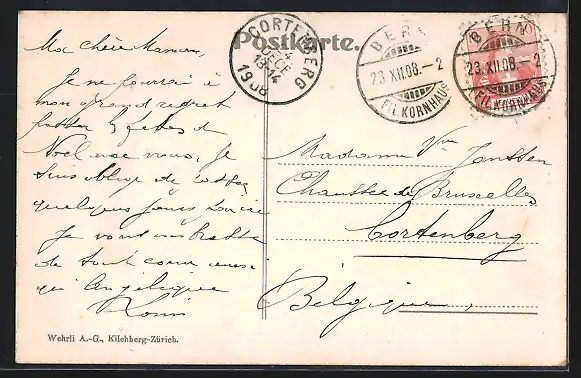 Postkarte.
CORTENBERG
24
DECE
13-14
1908
BERN
23.XII.08.-2
FIL.KORNHAUS
BERN
23.XII.08.-2
FIL.KORNHAUS
Ma chère Maman,
Je ne pourrai à
mon grand regret
fêter les fêtes de
Noël avec vous, Je
suis oblige de rester
quelques jours
Je vous embrasse
de tout coeur ainsi
qu' Angélique
Louis
Madame Vve Janssen
Chaussée de Bruxelles
Cortenberg
Belgique
Wehrli A.-G., Kilchberg-Zürich.